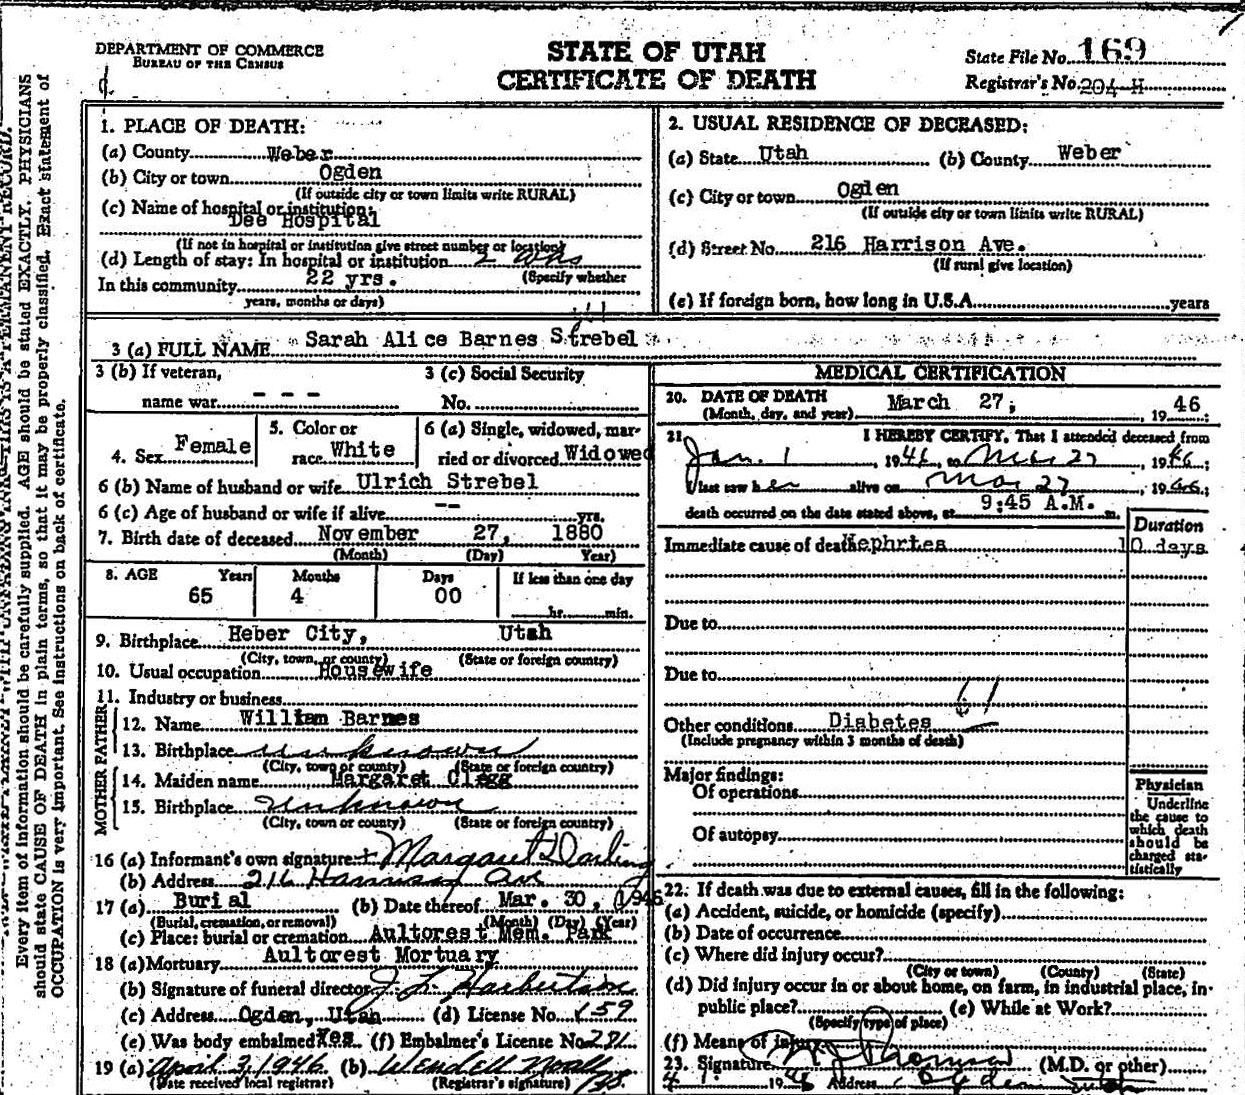 DEPARTMENT OF COMMERCE
BUREAU OF THE CENSUS
STATE OF UTAH
CERTIFICATE OF DEATH
State File No. 169
Registrar's No. 204-H
Every item of information should be carefully supplied. AGE should be stated EXACTLY. PHYSICIANS
should state CAUSE OF DEATH in plain terms, so that it may be properly classified. Exact statement of
OCCUPATION is very important. See instructions on back of certificate.
1. PLACE OF DEATH:
(a) County Weber
(b) City or town Ogden
(If outside city or town limits write RURAL)
(c) Name of hospital or institution:
Dee Hospital
(If not in hospital or institution give street number or location)
(d) Length of stay: In hospital or institution 2
(Specify whether
In this community 22 yrs.
years, months or days)
2. USUAL RESIDENCE OF DECEASED:
(a) State Utah (b) County Weber
(c) City or town Ogden
(If outside city or town limits write RURAL)
(d) Street No. 216 Harrison Ave.
(If rural give location)
(e) If foreign born, how long in U.S.A. years
3 (a) FULL NAME Sarah Alice Barnes Strebel
3 (b) If veteran,
name war - - -
3 (c) Social Security
No.
4. Sex Female
5. Color or
race White
6 (a) Single, widowed, mar-
ried or divorced Widowed
6 (b) Name of husband or wife Ulrich Strebel
6 (c) Age of husband or wife if alive -- yrs.
7. Birth date of deceased November 27, 1880
(Month) (Day) Year)
8. AGE Years Months Days If less than one day
65 4 00 hr. min.
9. Birthplace Heber City, Utah
(City, town, or county) (State or foreign country)
10. Usual occupation Housewife
11. Industry or business
FATHER
12. Name William Barnes
13. Birthplace unknown
(City, town or county) (State or foreign country)
MOTHER
14. Maiden name Margaret Clegg
15. Birthplace unknown
(City, town or county) (State or foreign country)
16 (a) Informant's own signature Margaret Darling
(b) Address 216 Harrison Ave
17 (a) Burial (b) Date thereof Mar. 30, 1946
(Burial, cremation, or removal) (Month) (Day) (Year)
(c) Place: burial or cremation Aultorest Mem. Park
18 (a) Mortuary Aultorest Mortuary
(b) Signature of funeral director J. L. Harbertson
(c) Address Ogden, Utah (d) License No. 159
(e) Was body embalmed Yes (f) Embalmer's License No. 281
19 (a) April 3, 1946 (b) Wendell Noall
(Date received local registrar) (Registrar's signature)
MEDICAL CERTIFICATION
20. DATE OF DEATH
(Month, day, and year) March 27, , 19 46 ;
21. I HEREBY CERTIFY, That I attended deceased from
Jan. 1 , 19 46, to Mar 27 , 19 46 ;
I last saw h er alive on Mar 27 , 19 46 ;
death occurred on the date stated above, at 9:45 A.M. m.
Duration
Immediate cause of death Nephrtes 10 days
Due to
Due to
61
Other conditions Diabetes
(Include pregnancy within 3 months of death)
Major findings:
Of operations
Of autopsy
Physician
Underline
the cause to
which death
should be
charged sta-
tistically
22. If death was due to external causes, fill in the following:
(a) Accident, suicide, or homicide (specify)
(b) Date of occurrence
(c) Where did injury occur?
(City or town) (County) (State)
(d) Did injury occur in or about home, on farm, in industrial place, in-
public place? (e) While at Work?
(Specify type of place)
(f) Means of injury
23. Signature Thomson (M.D. or other)
4 1 19 46 Address Ogden Utah